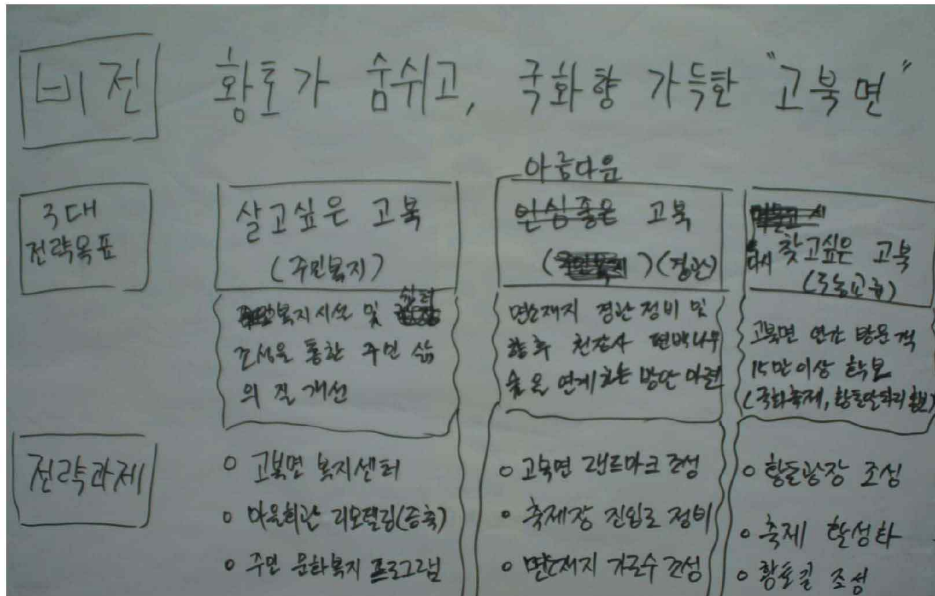 비전
황토가 숨쉬고, 국화향 가득한 "고북면"
3대
전략목표
살고싶은 고북
(주민복지)
복지시설 및 쉼터
조성을 통한 주민 삶
의 질 개선
아름다운
인심좋은 고북
(경관)
면소재지 경관 정비 및
향후 천장사 편백나무
숲을 연계하는 방안 마련
다시 찾고싶은 고북
고북면 연간 방문객
15만이상 확보
(국화축제, 황토알타리 홍보)
전략과제
○ 고북면 복지센터
○ 마을회관 리모델링(증축)
○ 주민 문화복지 프로그램
○ 고북면 랜드마크 조성
○ 축제장 진입로 정비
○ 면소재지 가로수 조성
○ 황토광장 조성
○ 축제 활성화
○ 황토길 조성